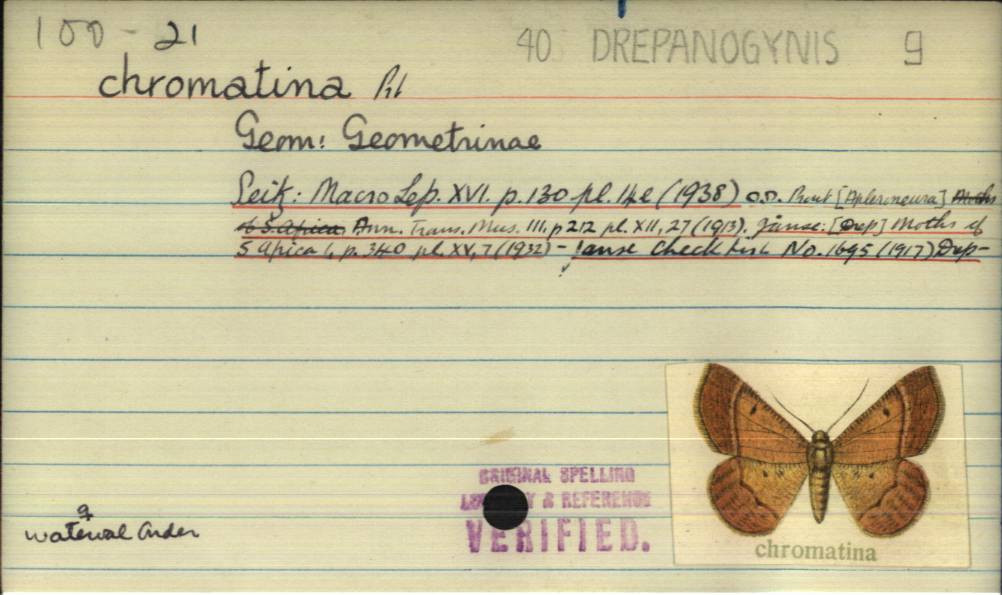 100 - 21
40 DREPANOGYNIS 9
chromatina
Geom: Geometrinae
Seitz: Macro Lep. XVI. p. 130 pl. 14 e (1938) O.D. Prout [Apleroneura] Moths
of S. Africa Ann. Trans. Mus. III, p 212 pl. XII, 27 (1913). Janse: [Drep] Moths of
S Africa 1, p. 340 pl. XV, 7 (1932) - Janse Check List No. 1695 (1917) Drep-
ORIGINAL SPELLING
& REFERENCE
VERIFIED.
chromatina
waterval onder